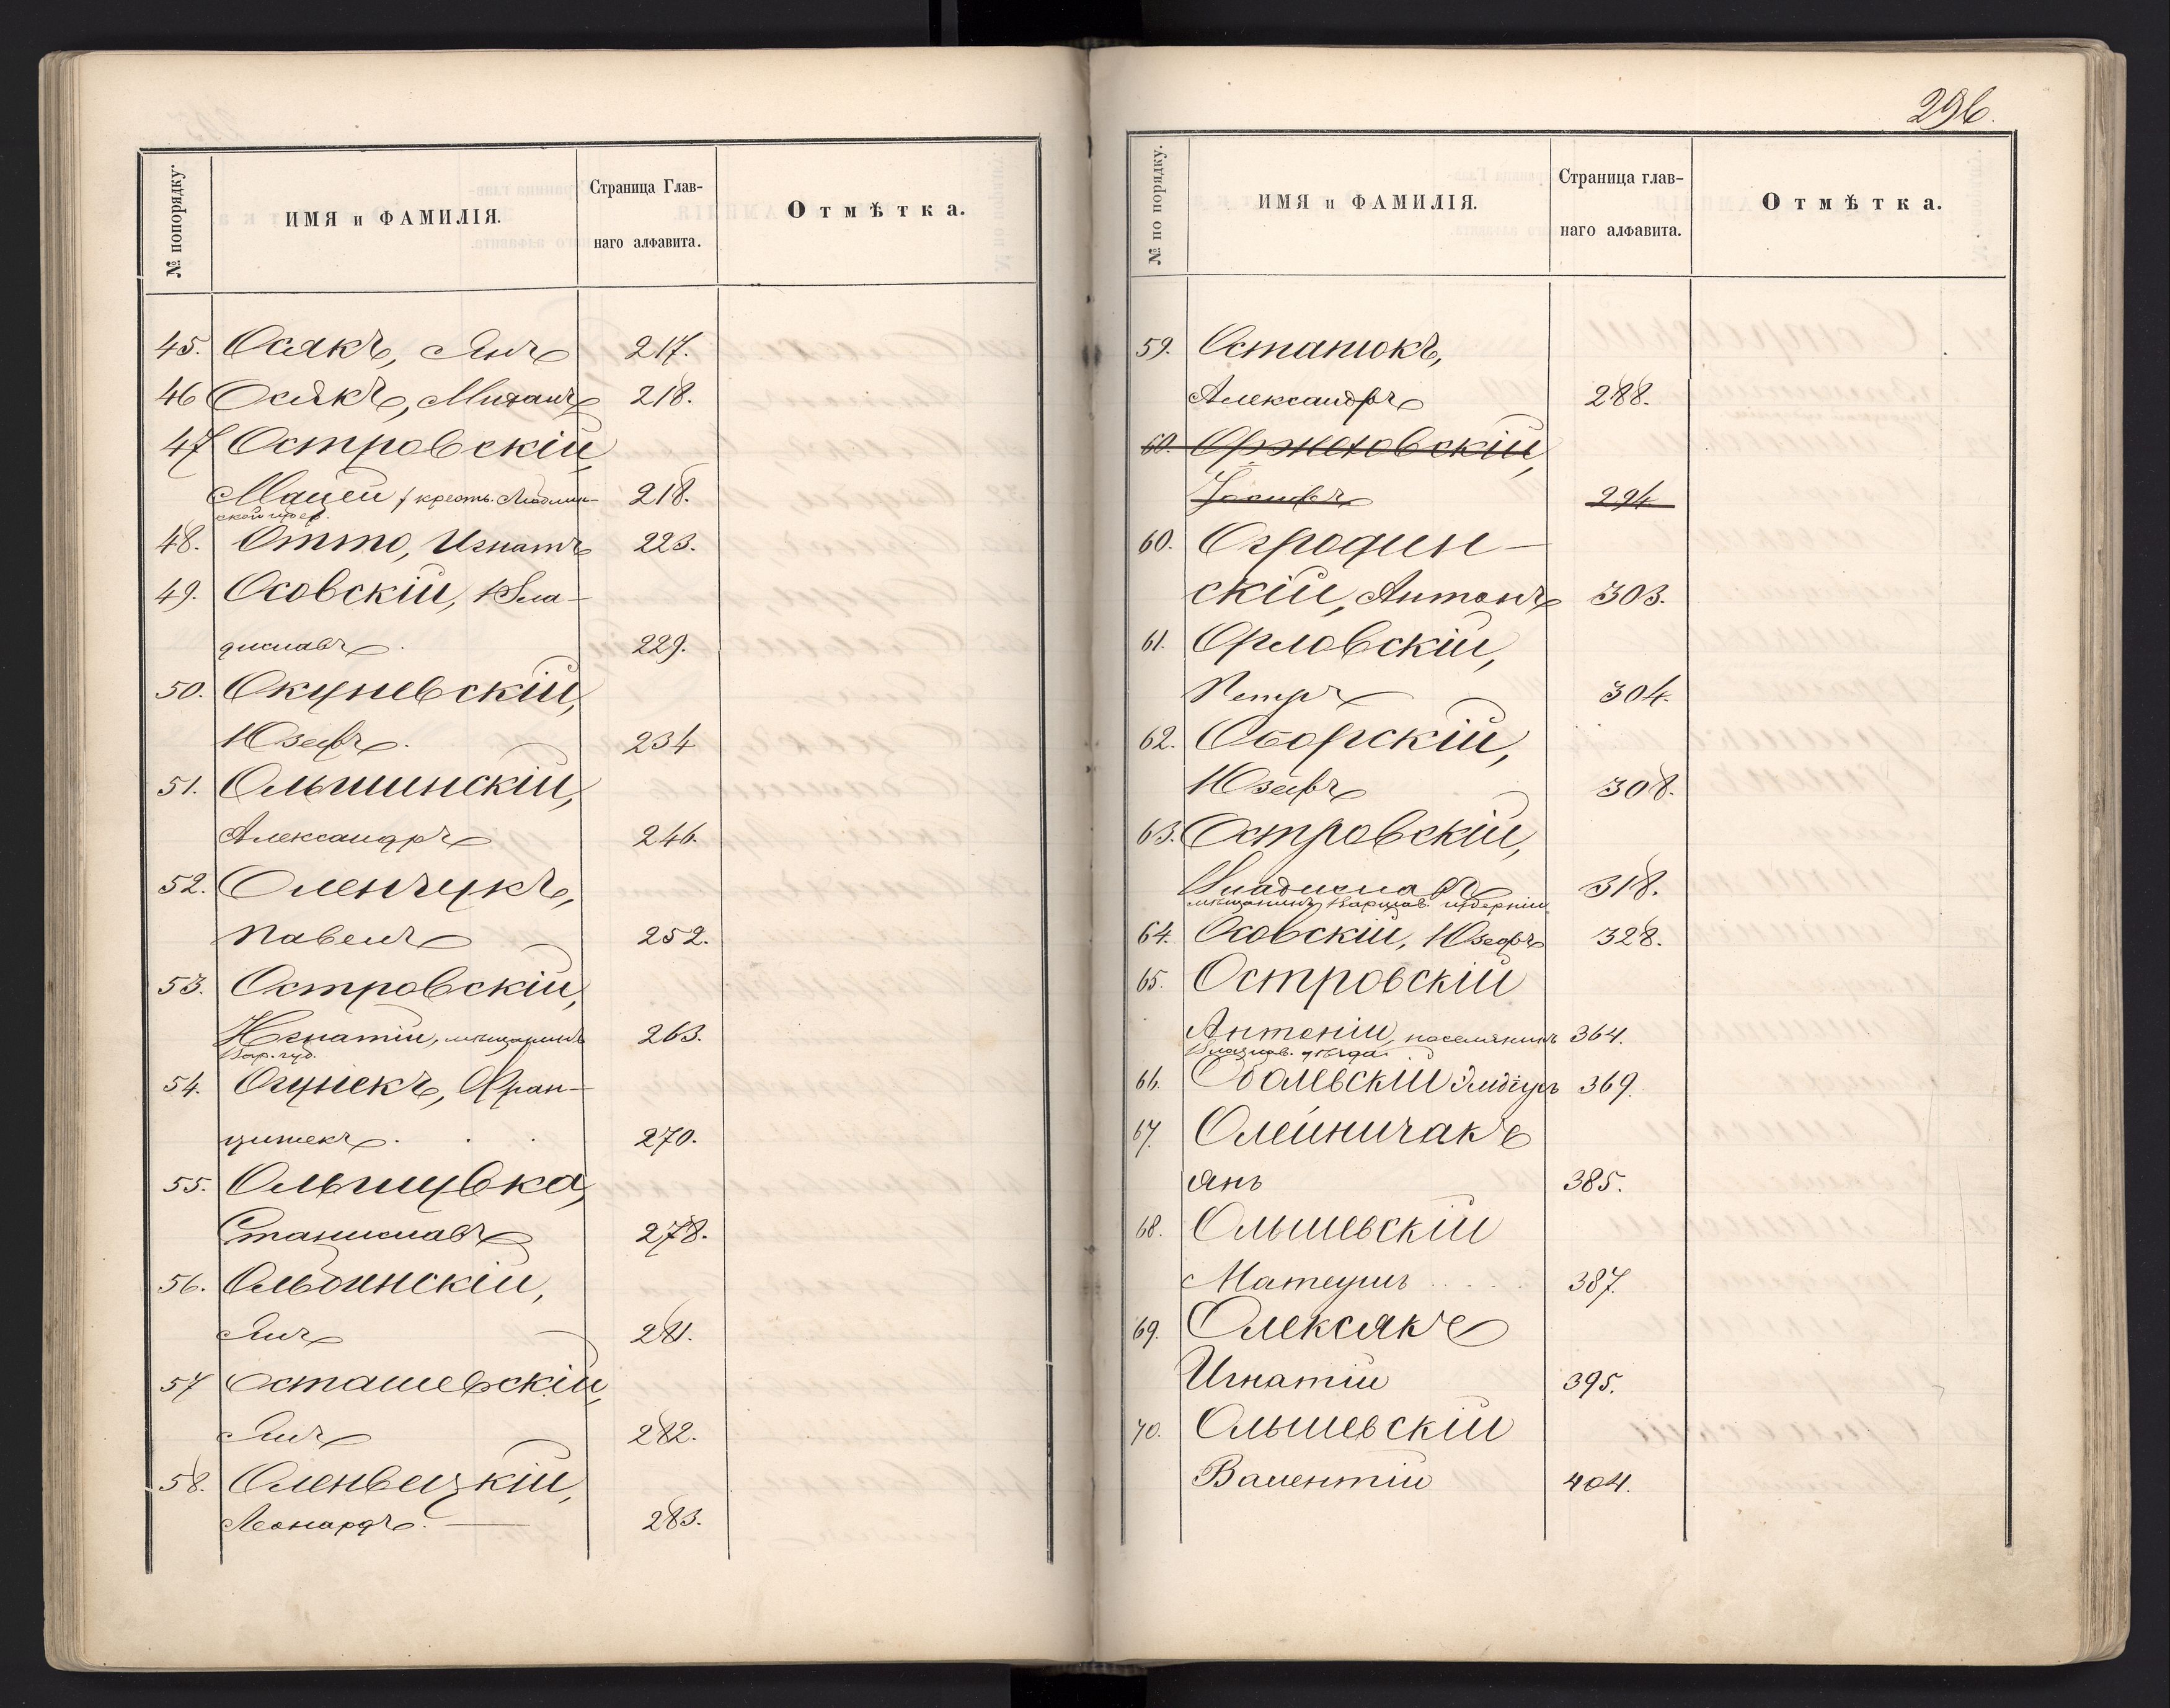 № попорядку.
ИМЯ и ФАМИЛІЯ.
Страница Глав-
наго алфавита.
Отмѣтка.
45. Осякъ, Янъ 217.
46 Осякъ, Михаилъ 218.
47 Островскій
Мацей / крестъ. Люблин- 218.
ской губер.
48. Отто, Игнатъ 223.
49. Осовскій, Вла-
диславъ. 229.
50. Окуневскій,
Юзефъ. 234
51. Ольшинскій,
Александръ 246.
52. Оленчукъ,
Павелъ 252.
53. Островскій,
Игнатій, мѣщанинъ 263.
Вар. губ.
54. Огунекъ, Фран-
цишекъ. 270.
55. Ольшувка,
Станиславъ 278.
56. Ольбинскій,
Янъ 281.
57 Осташевскій,
Янъ 282.
58. Оленвецкій,
Леонардъ. 283.
296.
№ по порядку.
ИМЯ и ФАМИЛІЯ.
Страница глав-
наго алфавита.
Отмѣтка.
59. Остапюкъ,
Александръ 288.
60. Оржеховскій,
Іосифъ 294
60. Огродин-
скій, Антонъ 303.
61. Орловскій,
Петръ 304.
62. Оборскій,
Юзефъ 308.
63. Островскій,
Владиславъ 318.
мѣщанинъ Варшав. губерніи
64. Осовскій, Юзефъ 328.
65. Островскій
Антоній, поселянинъ 364.
уѣзда
66. Обалевскій 369.
67. Олейничакъ
Янъ 385.
68. Олышевскій
Матеушъ 387.
69. Олексякъ
Игнатій 395.
70. Олышевскій
Валентій 404.